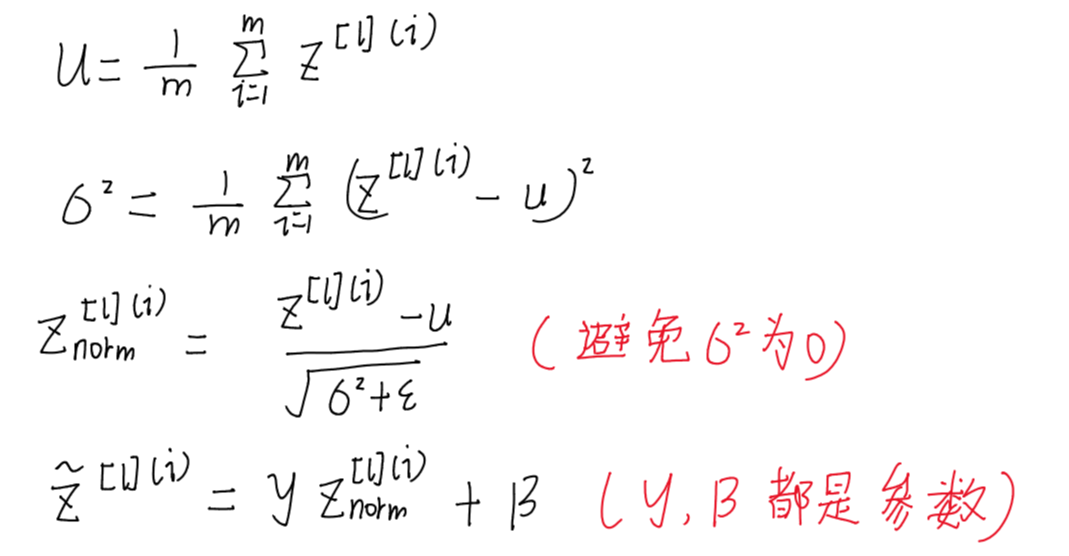 u = 1/m Σ_{i=1}^{m} z^{[l](i)}
σ² = 1/m Σ_{i=1}^{m} (z^{[l](i)} - u)²
z_{norm}^{[l](i)} = (z^{[l](i)} - u) / √(σ²+ε) (避免σ²为0)
z̃^{[l](i)} = γ z_{norm}^{[l](i)} + β (γ, β 都是参数)